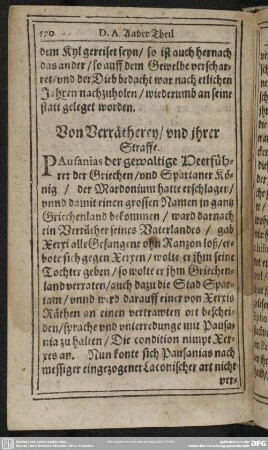 190 D. A. Ander Theil
dem Kyl gereiset seyn/ so ist auch hernach
das ander/ so auff dem Gewelbe verschar-
ret/ vnd der Dieb bedacht war nach etlichen
Jahren nachzuholen/ wiederumb an seine
statt geleget worden.
Von Verrätherey/ vnd jhrer
Straffe.
PAusanias der gewaltige Heerfüh-
rer der Griechen/ vnd Spartaner Kö-
nig/ der Mardonium hatte erschlagen/
vnnd damit einen grossen Namen in gantz
Griechenland bekommen/ ward darnach
ein Verräther seines Vaterlandes/ gab
Xerxi alle Gefangene ohn Ranzon loß/ er-
bote sich gegen Xerxen/ wolte er jhm seine
Tochter geben/ so wolte er jhm Griechen-
land verraten/ auch dazu die Stad Spar-
tam/ vnnd wird darauff einer von Xerxis
Räthen an einen vertrawten ort beschei-
den/ sprache vnd vnterredunge mit Pausa-
nia zu halten/ Die condition nimpt Xer-
xes an. Nun konte sich Pausanias nach
messiger eingezogener Laconischer art nicht
ver-